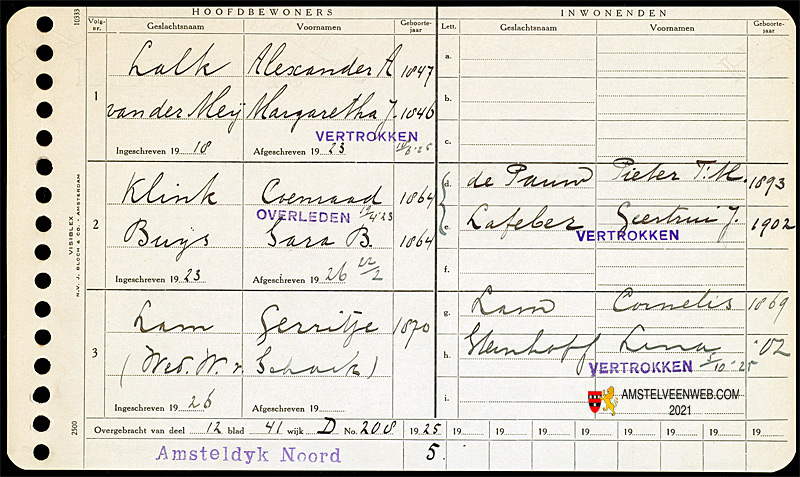 HOOFDBEWONERS
INWONENDEN
Volgnr. Geslachtsnaam Voornamen Geboortejaar
Lett. Geslachtsnaam Voornamen Geboortejaar
10333
1
Lalk Alexander A 1847
van der Meij Margaretha J. 1846
VERTROKKEN
Ingeschreven 19 18 Afgeschreven 19 23
2
Klink Coenraad 1864
OVERLEDEN
Buijs Sara B. 1864
Ingeschreven 19 23 Afgeschreven 19 26 12/2
3
Lam Gerritje 1870
(Wed. W. v. Schaik)
Ingeschreven 19 26 Afgeschreven 19
a.
b.
c.
d. de Pauw Pieter T.M. 1893
e. Lafeber Geertrui J. 1902
VERTROKKEN
f.
g. Lam Cornelis 1869
h. Steinhoff Lena '02
VERTROKKEN
i.
AMSTELVEENWEB.COM
2021
VISIBLEX
N.V. J. BLOCH & CO. - AMSTERDAM
2500
Overgebracht van deel 12 blad 41 wijk D No. 208 19 25 19 19 19 19 19 19 19 19
Amsteldyk Noord 5.